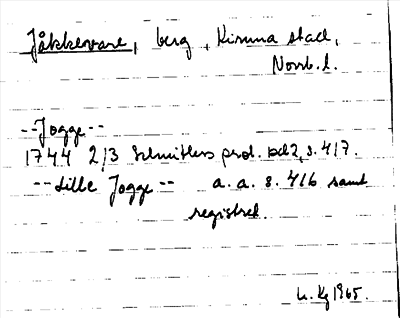 Jåkkevare, berg, Kiruna stad,
Norrb. l.
--Jogge--
1744 2/3 Schnitlers prot. bd 2, s. 417.
--Lille Jogge-- a. a. s. 416 samt
registret.
1965.